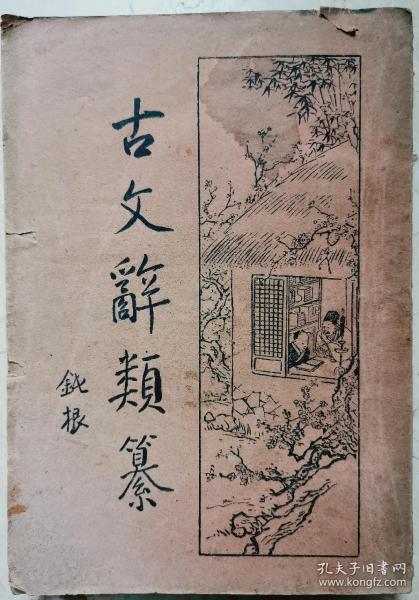 古文辭類纂
鈍根
孔夫子旧书网
www.kongfz.com